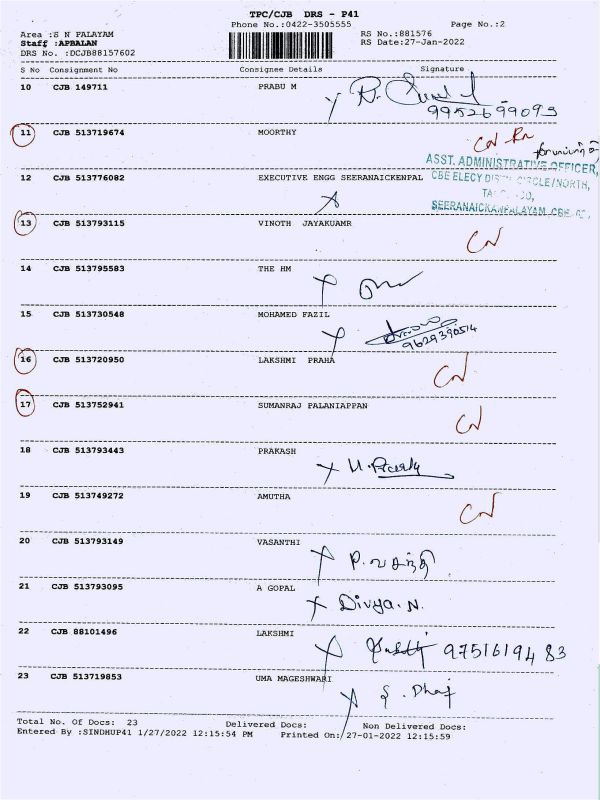 TPC/CJB DRS - P41
Phone No.:0422-3505555 Page No.:2
Area :S N PALAYAM RS No.:881576
Staff :APBALAN RS Date:27-Jan-2022
DRS No. :DCJB88157602
S No Consignment No Consignee Details Signature
10 CJB 149711 PRABU M
9952699093
11 CJB 513719674 MOORTHY
ASST. ADMINISTRATIVE OFFICER,
12 CJB 513776082 EXECUTIVE ENGG SEERANAICKENPAL CBE ELECY CIRCLE/NORTH,
SEERANAICKANPALAYAM, CBE
13 CJB 513793115 VINOTH JAYAKUAMR
14 CJB 513795583 THE HM
15 CJB 513730548 MOHAMED FAZIL
9629390514
16 CJB 513720950 LAKSHMI PRAHA
17 CJB 513752941 SUMANRAJ PALANIAPPAN
18 CJB 513793443 PRAKASH
19 CJB 513749272 AMUTHA
20 CJB 513793149 VASANTHI
P. வசந்தி
21 CJB 513793095 A GOPAL
Divya. N.
22 CJB 88101496 LAKSHMI
9751619483
23 CJB 513719853 UMA MAGESHWARI
Total No. Of Docs: 23 Delivered Docs: Non Delivered Docs:
Entered By :SINDHUP41 1/27/2022 12:15:54 PM Printed On: 27-01-2022 12:15:59